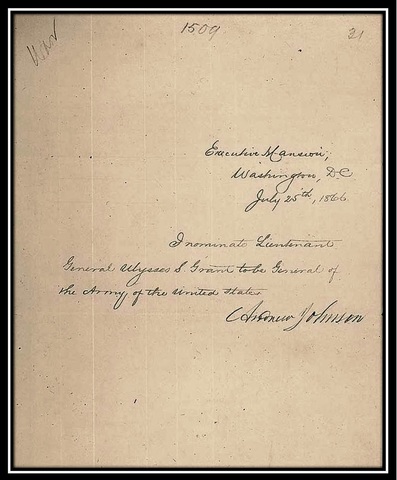 1509
31
Executive Mansion,
Washington, D.C.
July 25th, 1866
I nominate Lieutenant
General Ulysses S. Grant to be General of
the Army of the United States
Andrew Johnson